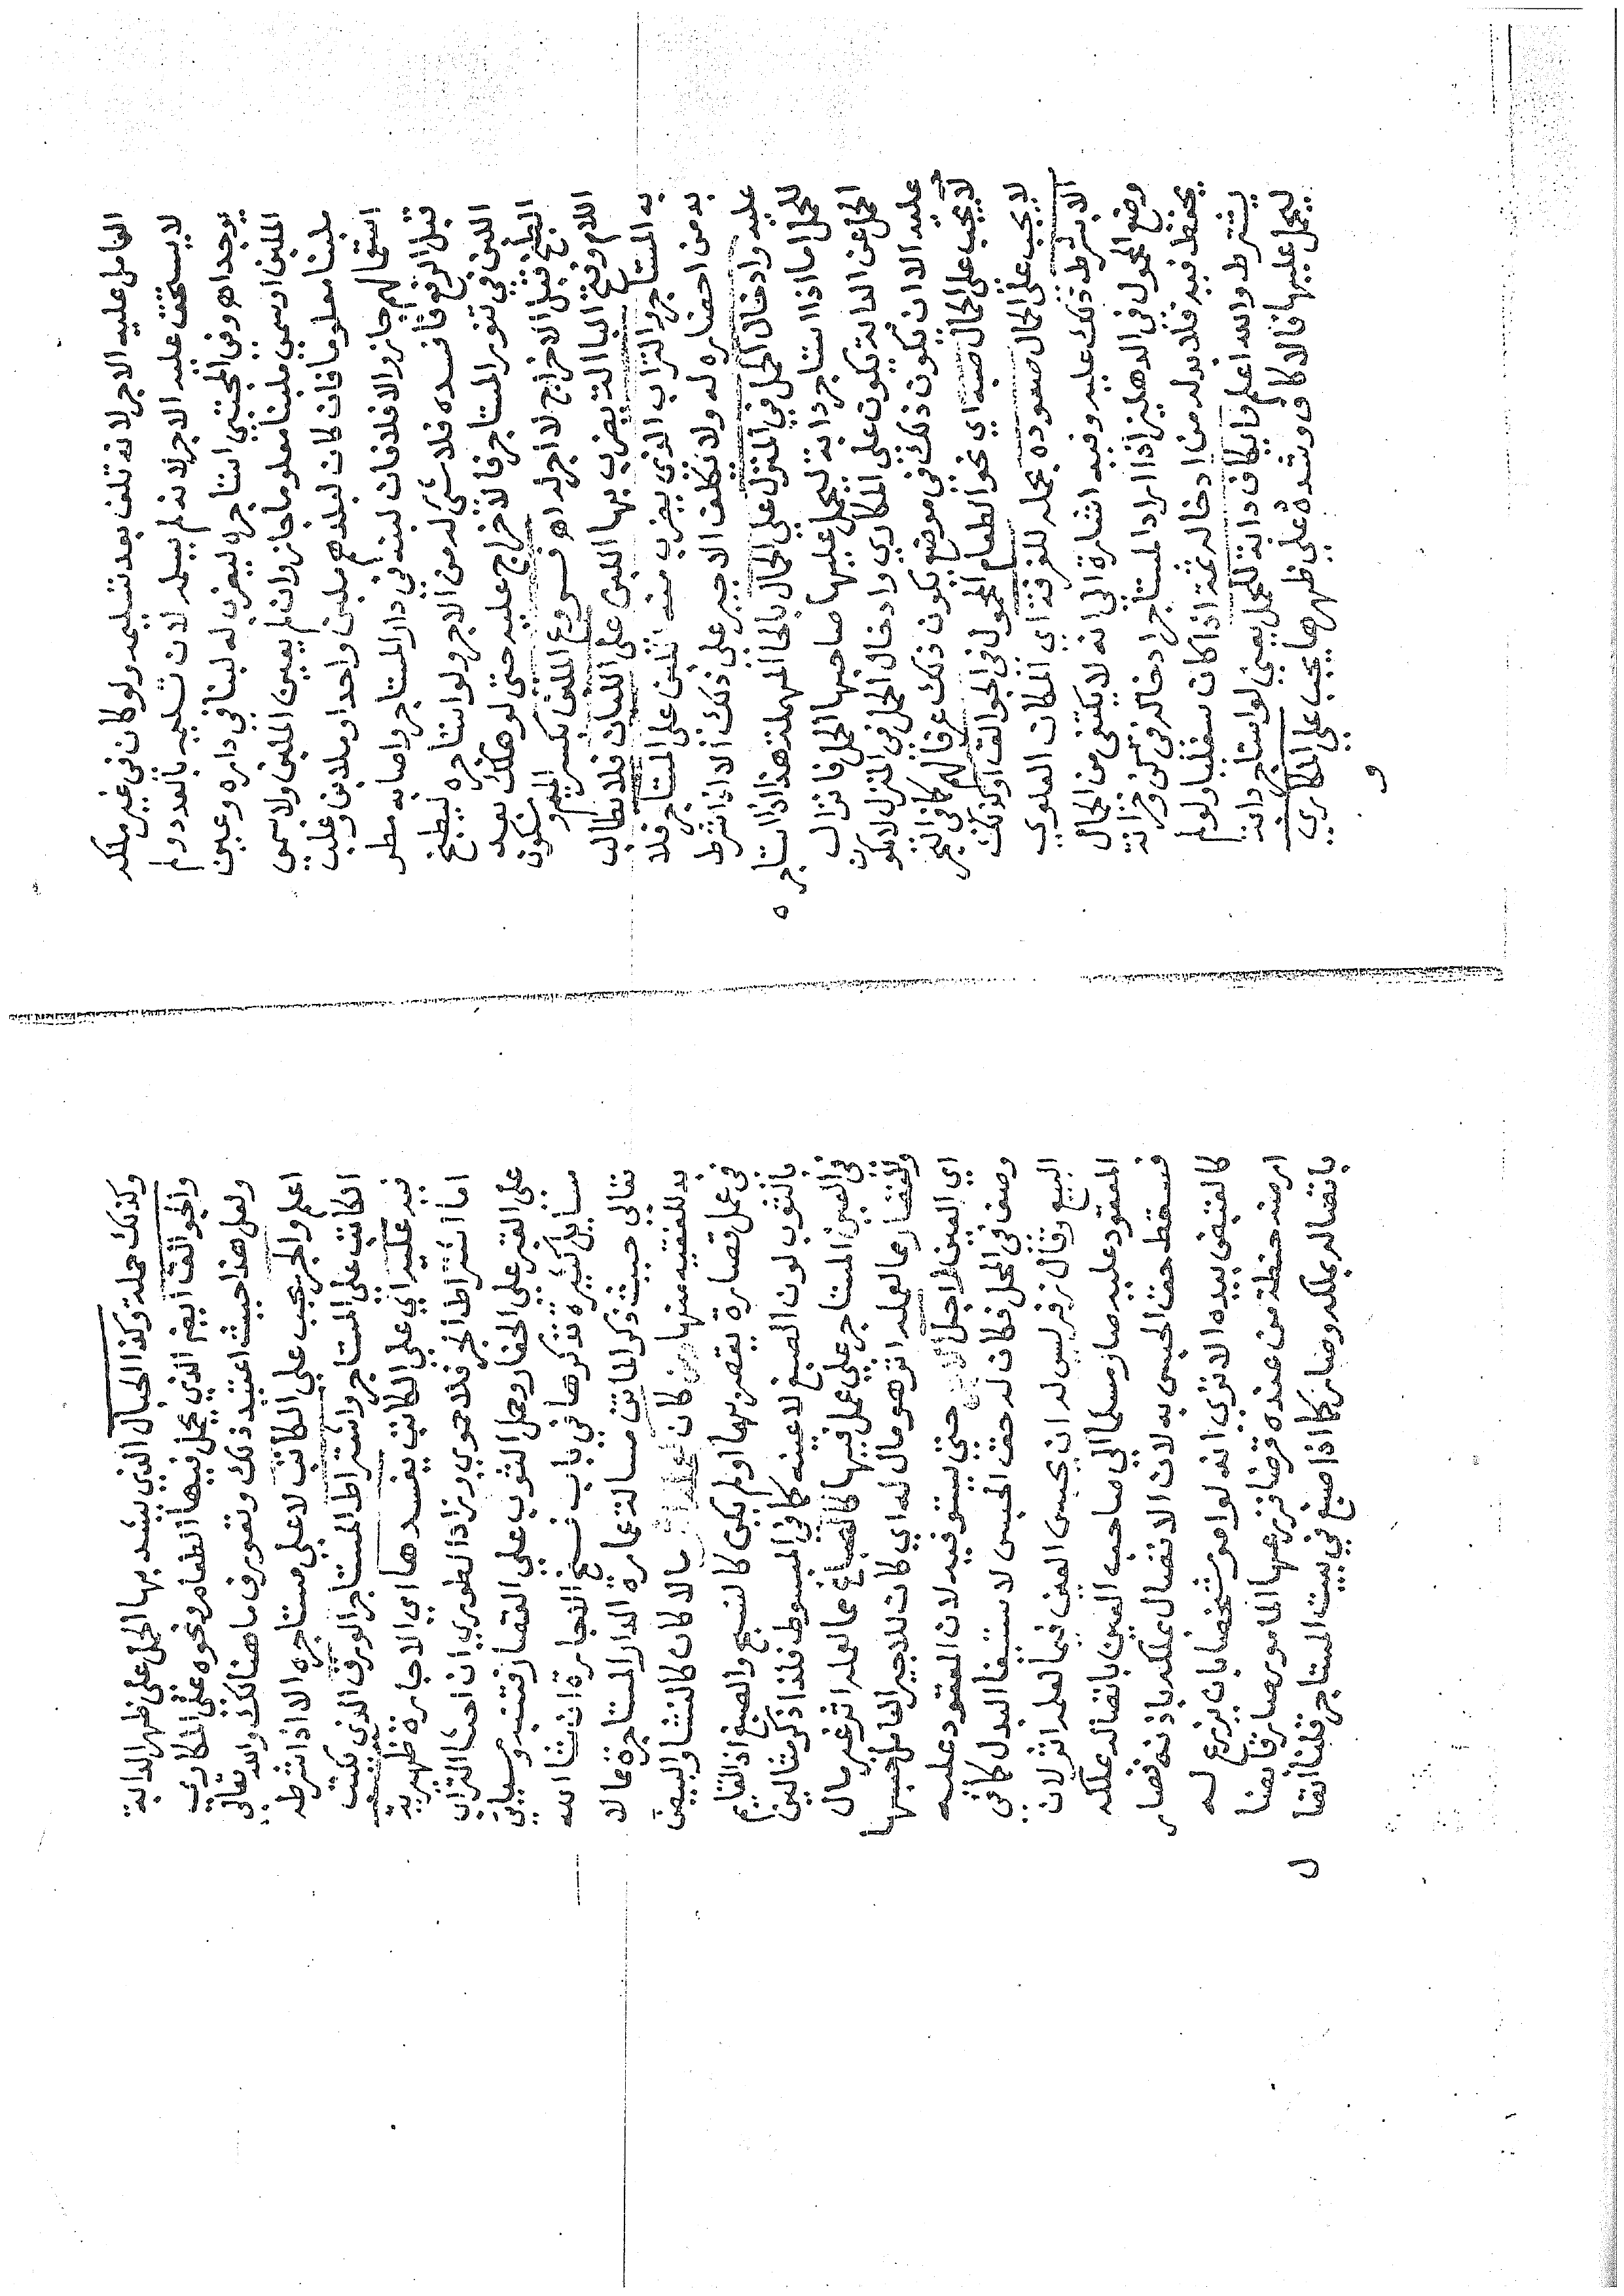 العامل عليه الاجر لانه تلف بعد تسليمه ولو كان في غير ملكه
لا يستحق عليه الاجر لانه لم يسلمه لان تسليمه بالعدد ولم
يوجد اهـ وفي المجتبي استاجره ليضرب له لبنا في داره وعين
الملبن او سمي ملبنا معلوما جاز وان لم يعين الملبن ولا سمي
ملبنا معلوما فان كان لبلدهم ملبن واحد او ملابن وغلب
استعمالهم جاز والا فلا فان لبنه في دار المستاجر واصابه مطر
قبل الرفع فافسده فلا شي له من الاجر ولو استاجره ليطبخ
اللبن في تنور المستاجر فالاخراج عليه حتى لو هلك بعد
الطبخ قبل الاخراج لا اجر له اهـ فروع الملبن بكسر الميم وسكون
اللام وفتح البا الة يضرب بها اللبن على اللبان فلا يطالب
به المستاجر والتراب الذي يضرب منه اللبن على المستاجر فلا
بد من احضاره له ولا يكلف الاجير على ذلك الا اذا شرط
عليه وادخال الحمل في المنزل على الحمال بالحا المهملة هذا اذا استاجره
للحمل اما اذا استاجر دابة ليحمل عليها صاحبها الحمل فانزال
الحمل عن الدابة يكون على المكاري وادخال الحمل في المنزل لا يكون
عليه الا ان يكون ذلك في موضع يكون ذلك عرفا لهم كما في البحر
لا يجب على الحمال صبه اي نحو الطعام المحمول في الجوالق او كذلك
لا يجب على الحمال صعوده بحمله للغرفة اي المكان العلوي
الا بشرط ذلك عليه وفيه اشارة الى انه لا يكتفي من الحمال
وضع المحمول في الدهليز اذا اراد المستاجر ادخاله في كن وخزانة
يحفظ فيه فلا بد له من ادخاله ثمة اذا كان سفليا ولو لم
يشترط والله اعلم وايكاف دابة للحمل يعني لو استاجر دابة
ليحمل عليها فالاكاف وشده على ظهرها يجب على المكاري
و
وكذلك حمله وكذا الحبال الذي يشد بها الحمل على ظهر الدابة
والجوالق ايضا الذي يحمل فيها الطعام ونحوه على المكاري
ولعل هذا حيث اعتيد ذلك وتعورف ما هنالك والله تعالى
اعلم والحبر يجب على الكاتب لا على مستاجره الا اذا شرطه
الكاتب على المستاجر واشتراط المستاجر الورق الذي يكتب
فيه عليه اي على الكاتب يفسدها اي الاجارة ظهيرية
اما اشتراط الحبر فلا حموي وزاد الطوري ان احثا التراب
على القبر على الحفار وحمل الثوب على القصار فتنبه وسياتي
مسايل كثيره نذكرها في باب فسخ الاجارة ان شا الله
تعالى حيث ذكر الماتن مسالة عمارة الدار المستاجرة مما لا
بد للفقيه منها ومن كان لعمله اثر بالا كان كالنشا والبيض
في عمل قصارة يقصر بها او لم يكن كالنسج والصبغ اذ القايم
بالثوب لون الصبغ لا عينه كما في المبسوط فلذا ذكر مثالين
في العين المستاجر على عمل فيها كالصباغ مما لعمله اثر غير مال
والقصار مما لعمله اثر هو مال له اي كان للاجير العامل حبسها
اي العين لاجل الاجر حتى يستوفيه لان المعقود عليه
وصف في المحل فكان له حق الحبس لاستيفا البدل كما في
البيع وقال زفر ليس له ان يحبس العين فيما لعمله اثر لان
المعقود عليه صار مسلما الي صاحب العين باتصاله بملكه
فسقط حق الحبس به لان الاتصال بملكه باذنه فصار
كالقبض بيده الا ترى انه لو امر شخصا بان يزرع له
ارضه حنطة من عنده قرضا فزرعها المامور صار قابضا
باتصاله بملكه وصار كما اذا صبغ في بيت المستاجر قلنا اتصا
ل